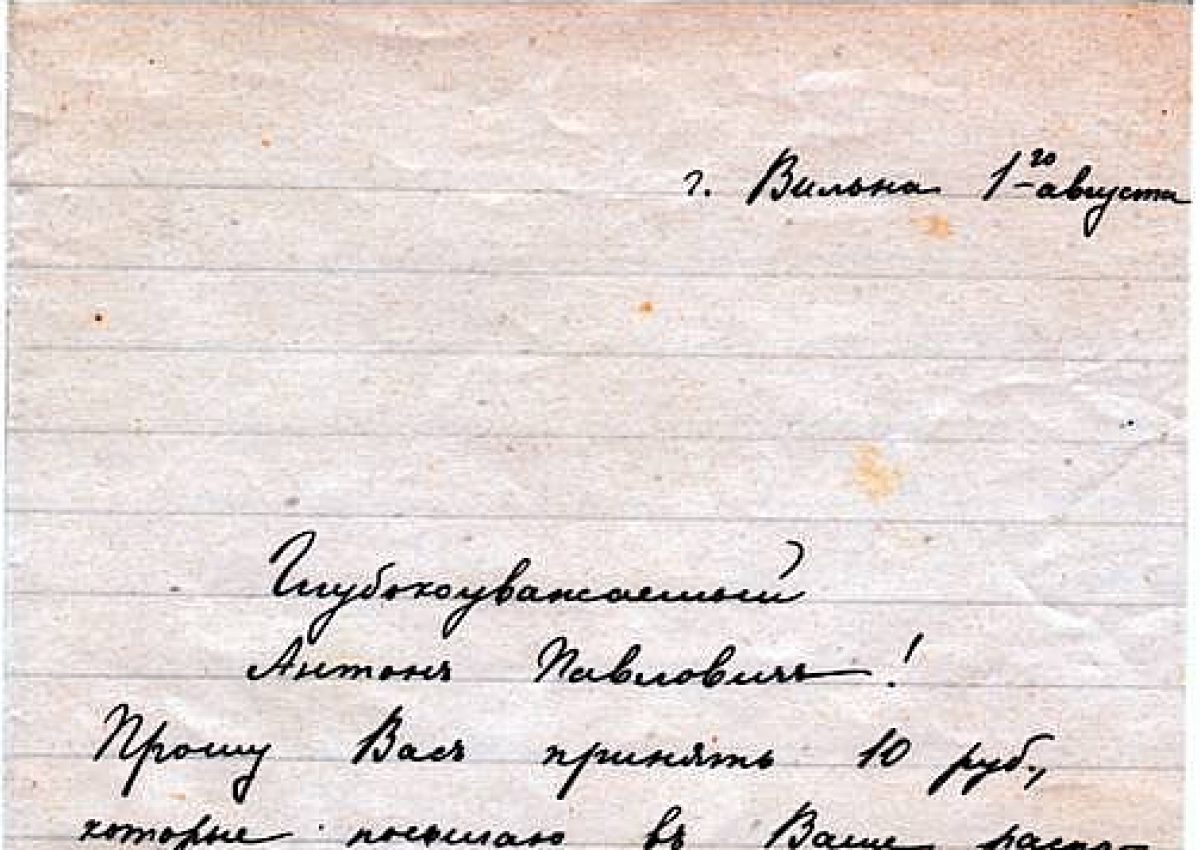 г. Вильна 1го августа
Глубокоуважаемый
Антонъ Павловичъ!
Прошу Васъ принять 10 руб.,
которые посылаю въ Ваше распо-